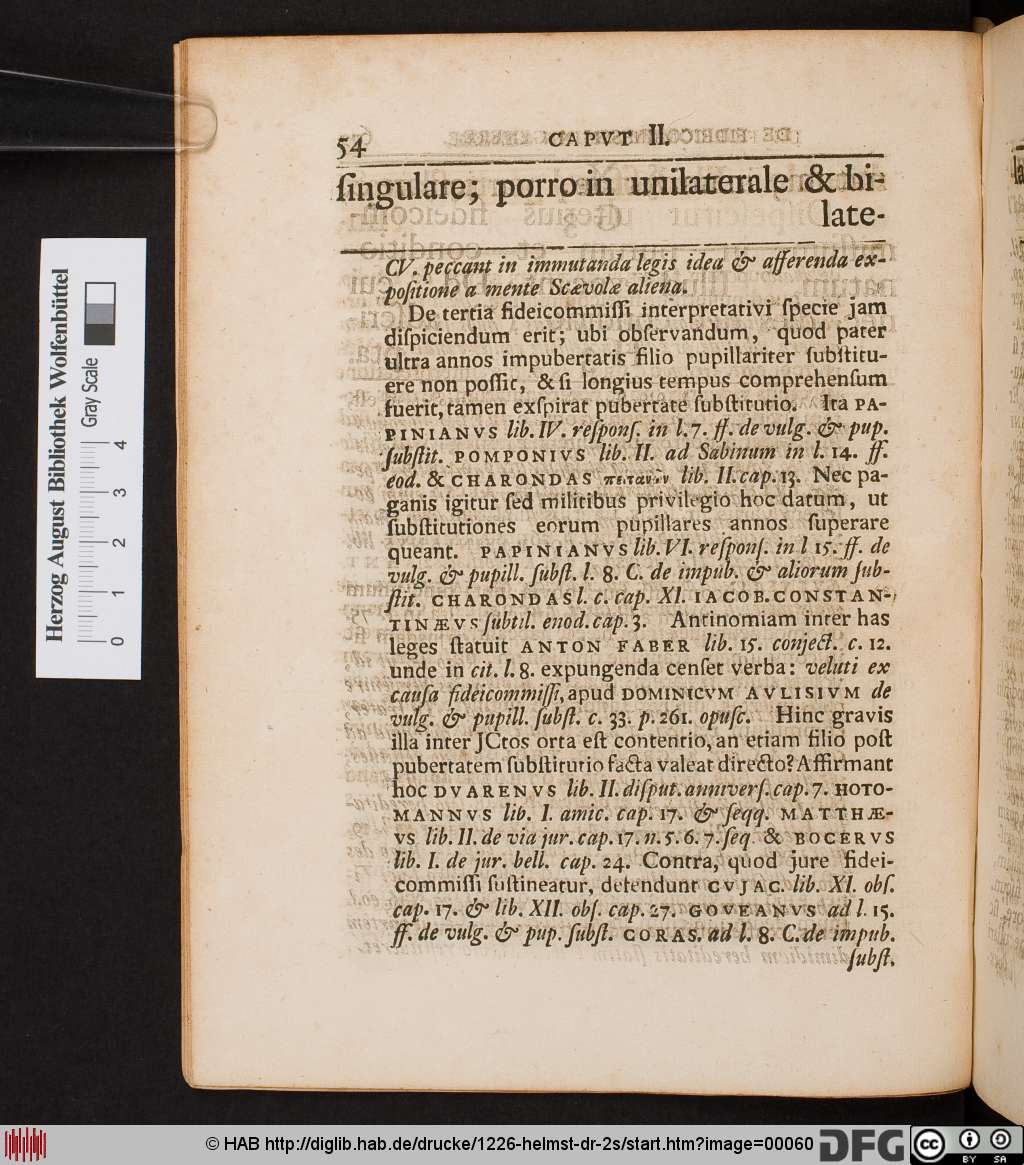 54 CAPVT II.
ſingulare; porro in unilaterale & bi-
late-
CV. peccant in immutanda legis idea & afferenda ex-
poſitione a mente Scævolæ aliena.
De tertia fideicommiſſi interpretativi ſpecie jam
diſpiciendum erit; ubi obſervandum, quod pater
ultra annos impubertatis filio pupillariter ſubſtitu-
ere non poſſit, & ſi longius tempus comprehenſum
fuerit, tamen exſpirat pubertate ſubſtitutio. Ita PA-
PINIANVS lib. IV. reſponſ. in l. 7. ff. de vulg. & pup.
ſubſtit. POMPONIVS lib. II. ad Sabinum in l. 14. ff.
eod. & CHARONDAS lib. II. cap. 13. Nec pa-
ganis igitur ſed militibus privilegio hoc datum, ut
ſubſtitutiones eorum pupillares annos ſuperare
queant. PAPINIANVS lib. VI. reſponſ. in l 15. ff. de
vulg. & pupill. ſubſt. l. 8. C. de impub. & aliorum ſub-
ſtit. CHARONDAS l. c. cap. XI. IACOB. CONSTAN-
TINÆVS ſubtil. enod. cap. 3. Antinomiam inter has
leges ſtatuit ANTON FABER lib. 15. conject. c. 12.
unde in cit. l. 8. expungenda cenſet verba: veluti ex
cauſa fideicommiſſi, apud DOMINICVM AVLISIVM de
vulg. & pupill. ſubſt. c. 33. p. 261. opuſc. Hinc gravis
illa inter JCtos orta eſt contentio, an etiam filio poſt
pubertatem ſubſtitutio facta valeat directo? Affirmant
hoc DVARENVS lib. II. diſput. anniverſ. cap. 7. HOTO-
MANNVS lib. I. amic. cap. 17. & ſeqq. MATTHÆ-
VS lib. II. de via jur. cap. 17. n. 5. 6. 7. ſeq. & BOCERVS
lib. I. de jur. bell. cap. 24. Contra, quod jure fidei-
commiſſi ſuſtineatur, defendunt CVJAC. lib. XI. obſ.
cap. 17. & lib. XII. obſ. cap. 27. GOVEANVS ad l. 15.
ff. de vulg. & pup. ſubſt. CORAS. ad l. 8. C. de impub.
ſubſt.
Herzog August Bibliothek Wolfenbüttel
Gray Scale
0 1 2 3 4
© HAB http://diglib.hab.de/drucke/1226-helmst-dr-2s/start.htm?image=00060 DFG cc BY SA